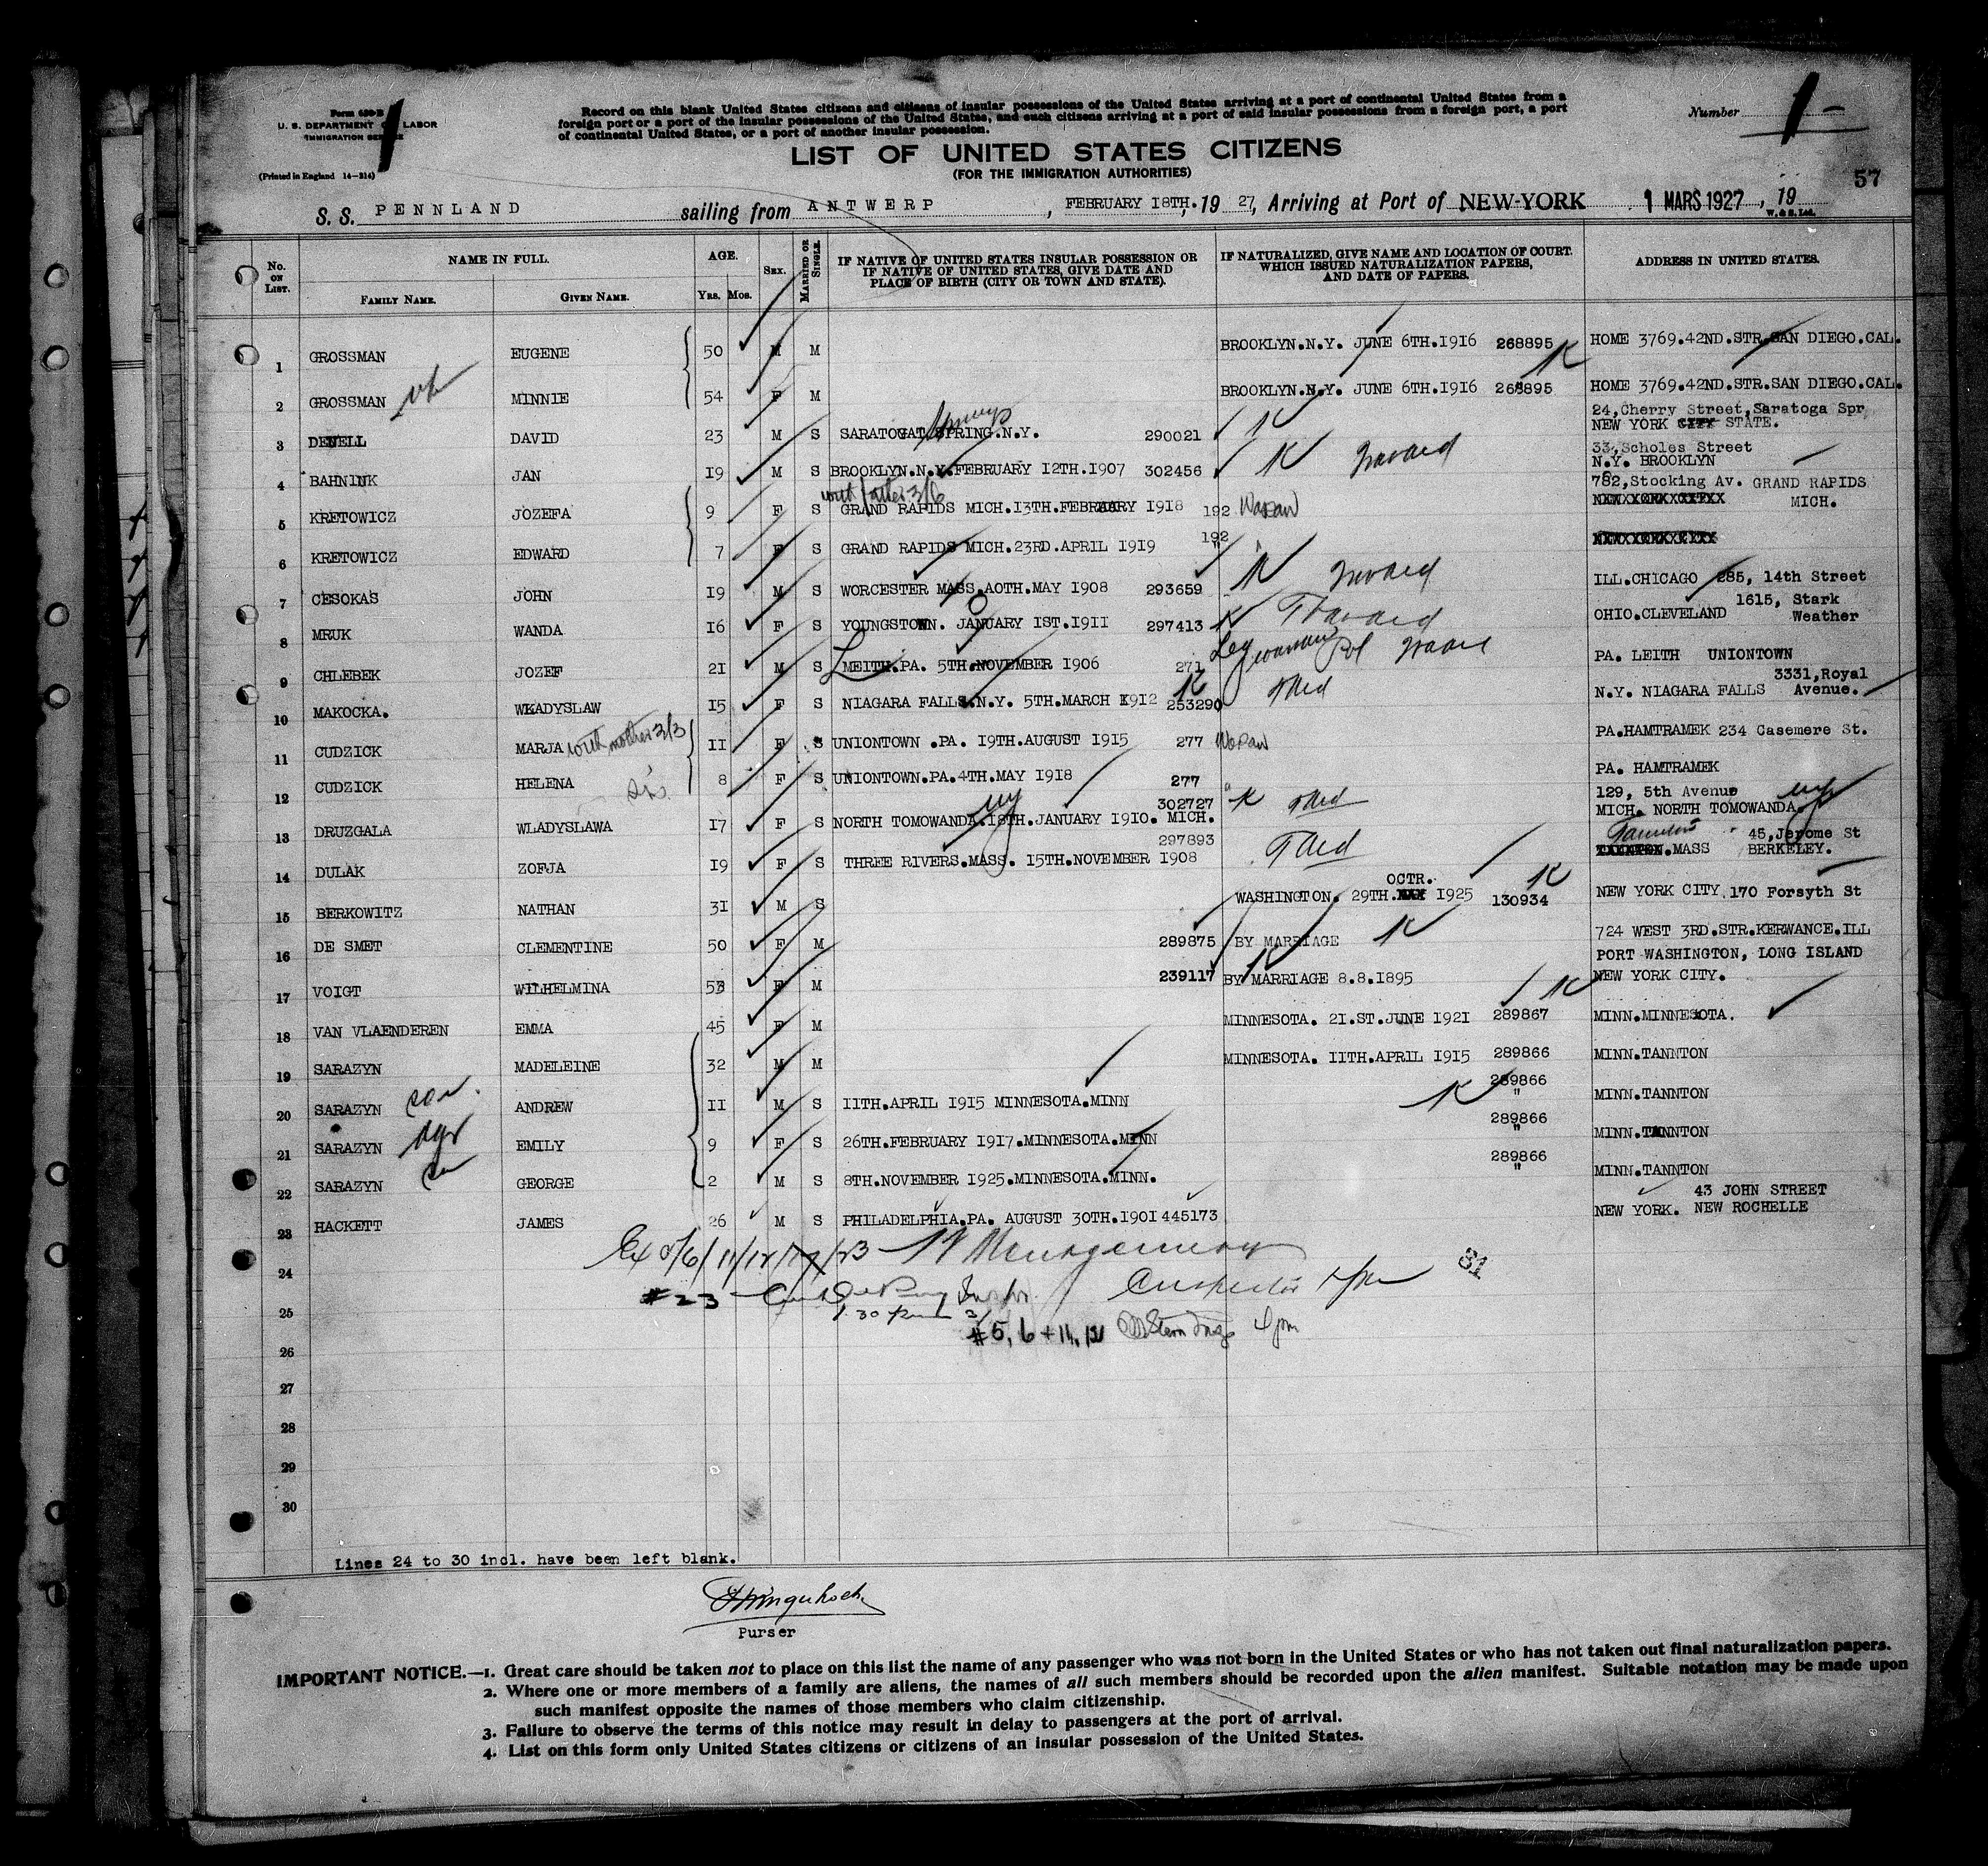 Form 630-B
U. S. DEPARTMENT OF LABOR
IMMIGRATION SERVICE
(Printed in England 14—214)
1
Record on this blank United States citizens and citizens of insular possessions of the United States arriving at a port of continental United States from a
foreign port or a port of the insular possessions of the United States, and such citizens arriving at a port of said insular possessions from a foreign port, a port
of continental United States, or a port of another insular possession.
Number 1 -
LIST OF UNITED STATES CITIZENS
(FOR THE IMMIGRATION AUTHORITIES)
57
S. S. PENNLAND sailing from ANTWERP, FEBRUARY 18TH, 19 27, Arriving at Port of NEW-YORK 1 MARS 1927, 19
W. & S. Ltd.
No. ON LIST. NAME IN FULL. FAMILY NAME. GIVEN NAME. AGE. YRS. MOS. SEX. MARRIED OR SINGLE. IF NATIVE OF UNITED STATES INSULAR POSSESSION OR IF NATIVE OF UNITED STATES, GIVE DATE AND PLACE OF BIRTH (CITY OR TOWN AND STATE). IF NATURALIZED, GIVE NAME AND LOCATION OF COURT WHICH ISSUED NATURALIZATION PAPERS, AND DATE OF PAPERS. ADDRESS IN UNITED STATES.
1 GROSSMAN EUGENE 50 M M BROOKLYN.N.Y. JUNE 6TH.1916 268895 HOME 3769.42ND.STR.SAN DIEGO.CAL.
2 GROSSMAN MINNIE 54 F M BROOKLYN.N.Y. JUNE 6TH.1916 268895 HOME 3769.42ND.STR.SAN DIEGO.CAL.
3 DENELL DAVID 23 M S SARATOGAT SPRING.N.Y. 290021 24,Cherry Street,Saratoga Spr NEW YORK CITY STATE.
4 BAHNIUK JAN 19 M S BROOKLYN.N.Y.FEBRUARY 12TH.1907 302456 33,Scholes Street N.Y. BROOKLYN
with father 3/6
5 KRETOWICZ JOZEFA 9 F S GRAND RAPIDS MICH.13TH.FEBRUARY 1918 192 Warsaw 782,Stocking Av. GRAND RAPIDS MICH.
6 KRETOWICZ EDWARD 7 F S GRAND RAPIDS MICH.23RD.APRIL 1919 192 "
7 CESOKAS JOHN 19 M S WORCESTER MASS.AOTH.MAY 1908 293659 ILL.CHICAGO 285, 14th Street
8 MRUK WANDA 16 F S YOUNGSTOWN. JANUARY 1ST.1911 297413 OHIO.CLEVELAND 1615, Stark Weather
9 CHLEBEK JOZEF 21 M S MEITH.PA. 5TH.NOVEMBER 1906 271 PA. LEITH UNIONTOWN
10 MAKOCKA. WKADYSLAW 15 F S NIAGARA FALLS.N.Y. 5TH.MARCH 1912 253290 N.Y. NIAGARA FALLS 3331,Royal Avenue.
11 CUDZICK MARJA with mother 3/3 11 F S UNIONTOWN .PA. 19TH.AUGUST 1915 277 Warsaw PA.HAMTRAMEK 234 Casemere St.
12 CUDZICK HELENA sis. 8 F S UNIONTOWN.PA.4TH.MAY 1918 277 " PA. HAMTRAMEK
13 DRUZGALA WLADYSLAWA 17 F S NORTH TOMOWANDA.18TH.JANUARY 1910. MICH. ny 302727 129, 5th Avenue MICH. NORTH TOMOWANDA. ny
14 DULAK ZOFJA 19 F S THREE RIVERS.MASS. 15TH.NOVEMBER 1908 297893 Taunton TAUNTON.MASS 45,Jerome St BERKELEY.
15 BERKOWITZ NATHAN 31 M S WASHINGTON. 29TH.MAY OCTR. 1925 130934 NEW YORK CITY 170 Forsyth St
16 DE SMET CLEMENTINE 50 F M 289875 BY MARRIAGE 724 WEST 3RD.STR.KERWANCE.ILL
17 VOIGT WILHELMINA 53 F M 239117 BY MARRIAGE 8.8.1895 PORT WASHINGTON, LONG ISLAND NEW YORK CITY.
18 VAN VLAENDEREN EMMA 45 F M MINNESOTA. 21.ST.JUNE 1921 289867 MINN.MINNESOTA.
19 SARAZYN MADELEINE 32 M M MINNESOTA. 11TH.APRIL 1915 289866 MINN.TANNTON
20 SARAZYN son. ANDREW 11 M S 11TH.APRIL 1915 MINNESOTA.MINN 289866 " MINN.TANNTON
21 SARAZYN EMILY 9 F S 26TH.FEBRUARY 1917.MINNESOTA.MINN 289866 " MINN.TANNTON
22 SARAZYN GEORGE 2 M S 8TH.NOVEMBER 1925.MINNESOTA.MINN. 289866 " MINN.TANNTON
23 HACKETT JAMES 26 M S PHILADELPHIA.PA. AUGUST 30TH.1901 445173 NEW YORK. 43 JOHN STREET NEW ROCHELLE
24 Inspector 31
25 #23 1.30
26 #5, 6 + 11, 12 4 pm
27
28
29
30
Lines 24 to 30 incl. have been left blank.
Purser
IMPORTANT NOTICE.—1. Great care should be taken not to place on this list the name of any passenger who was not born in the United States or who has not taken out final naturalization papers.
2. Where one or more members of a family are aliens, the names of all such members should be recorded upon the alien manifest. Suitable notation may be made upon
such manifest opposite the names of those members who claim citizenship.
3. Failure to observe the terms of this notice may result in delay to passengers at the port of arrival.
4. List on this form only United States citizens or citizens of an insular possession of the United States.